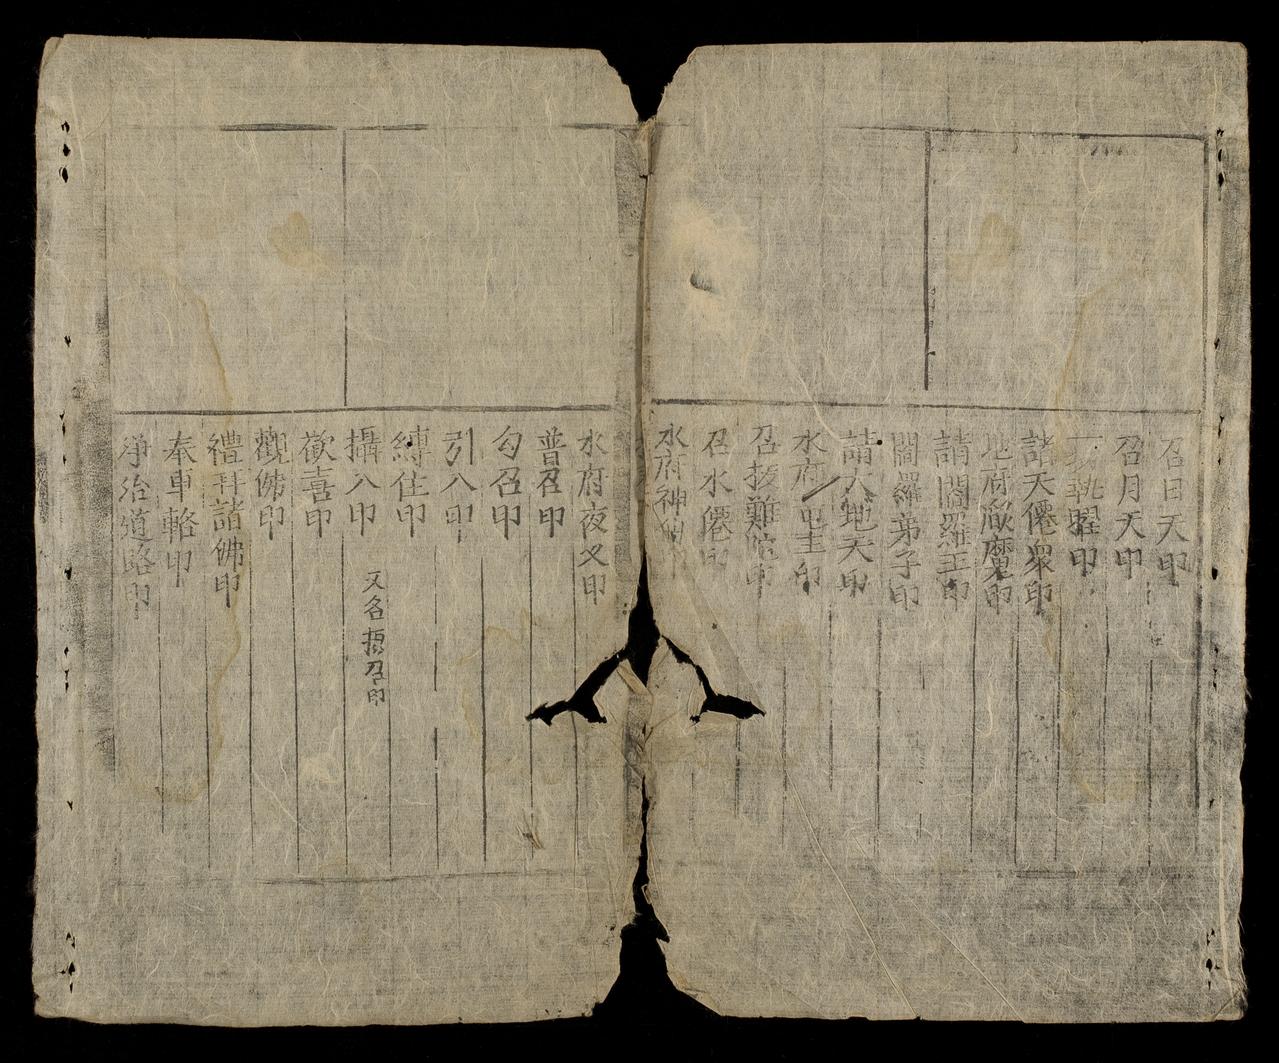 召日天印
召月天印
執曜印
諸天僊衆印
地府㷔魔印
請閻羅王印
閻羅弟子印
請大地天印
水府 印
召拔難陁印
召水僊印
水府神 
水府夜叉印
普召印
勾召印
引入印
縛住印
攝入印
又名 召印
歡喜印
觀佛印
禮拜諸佛印
奉車輅印
淨治道路印